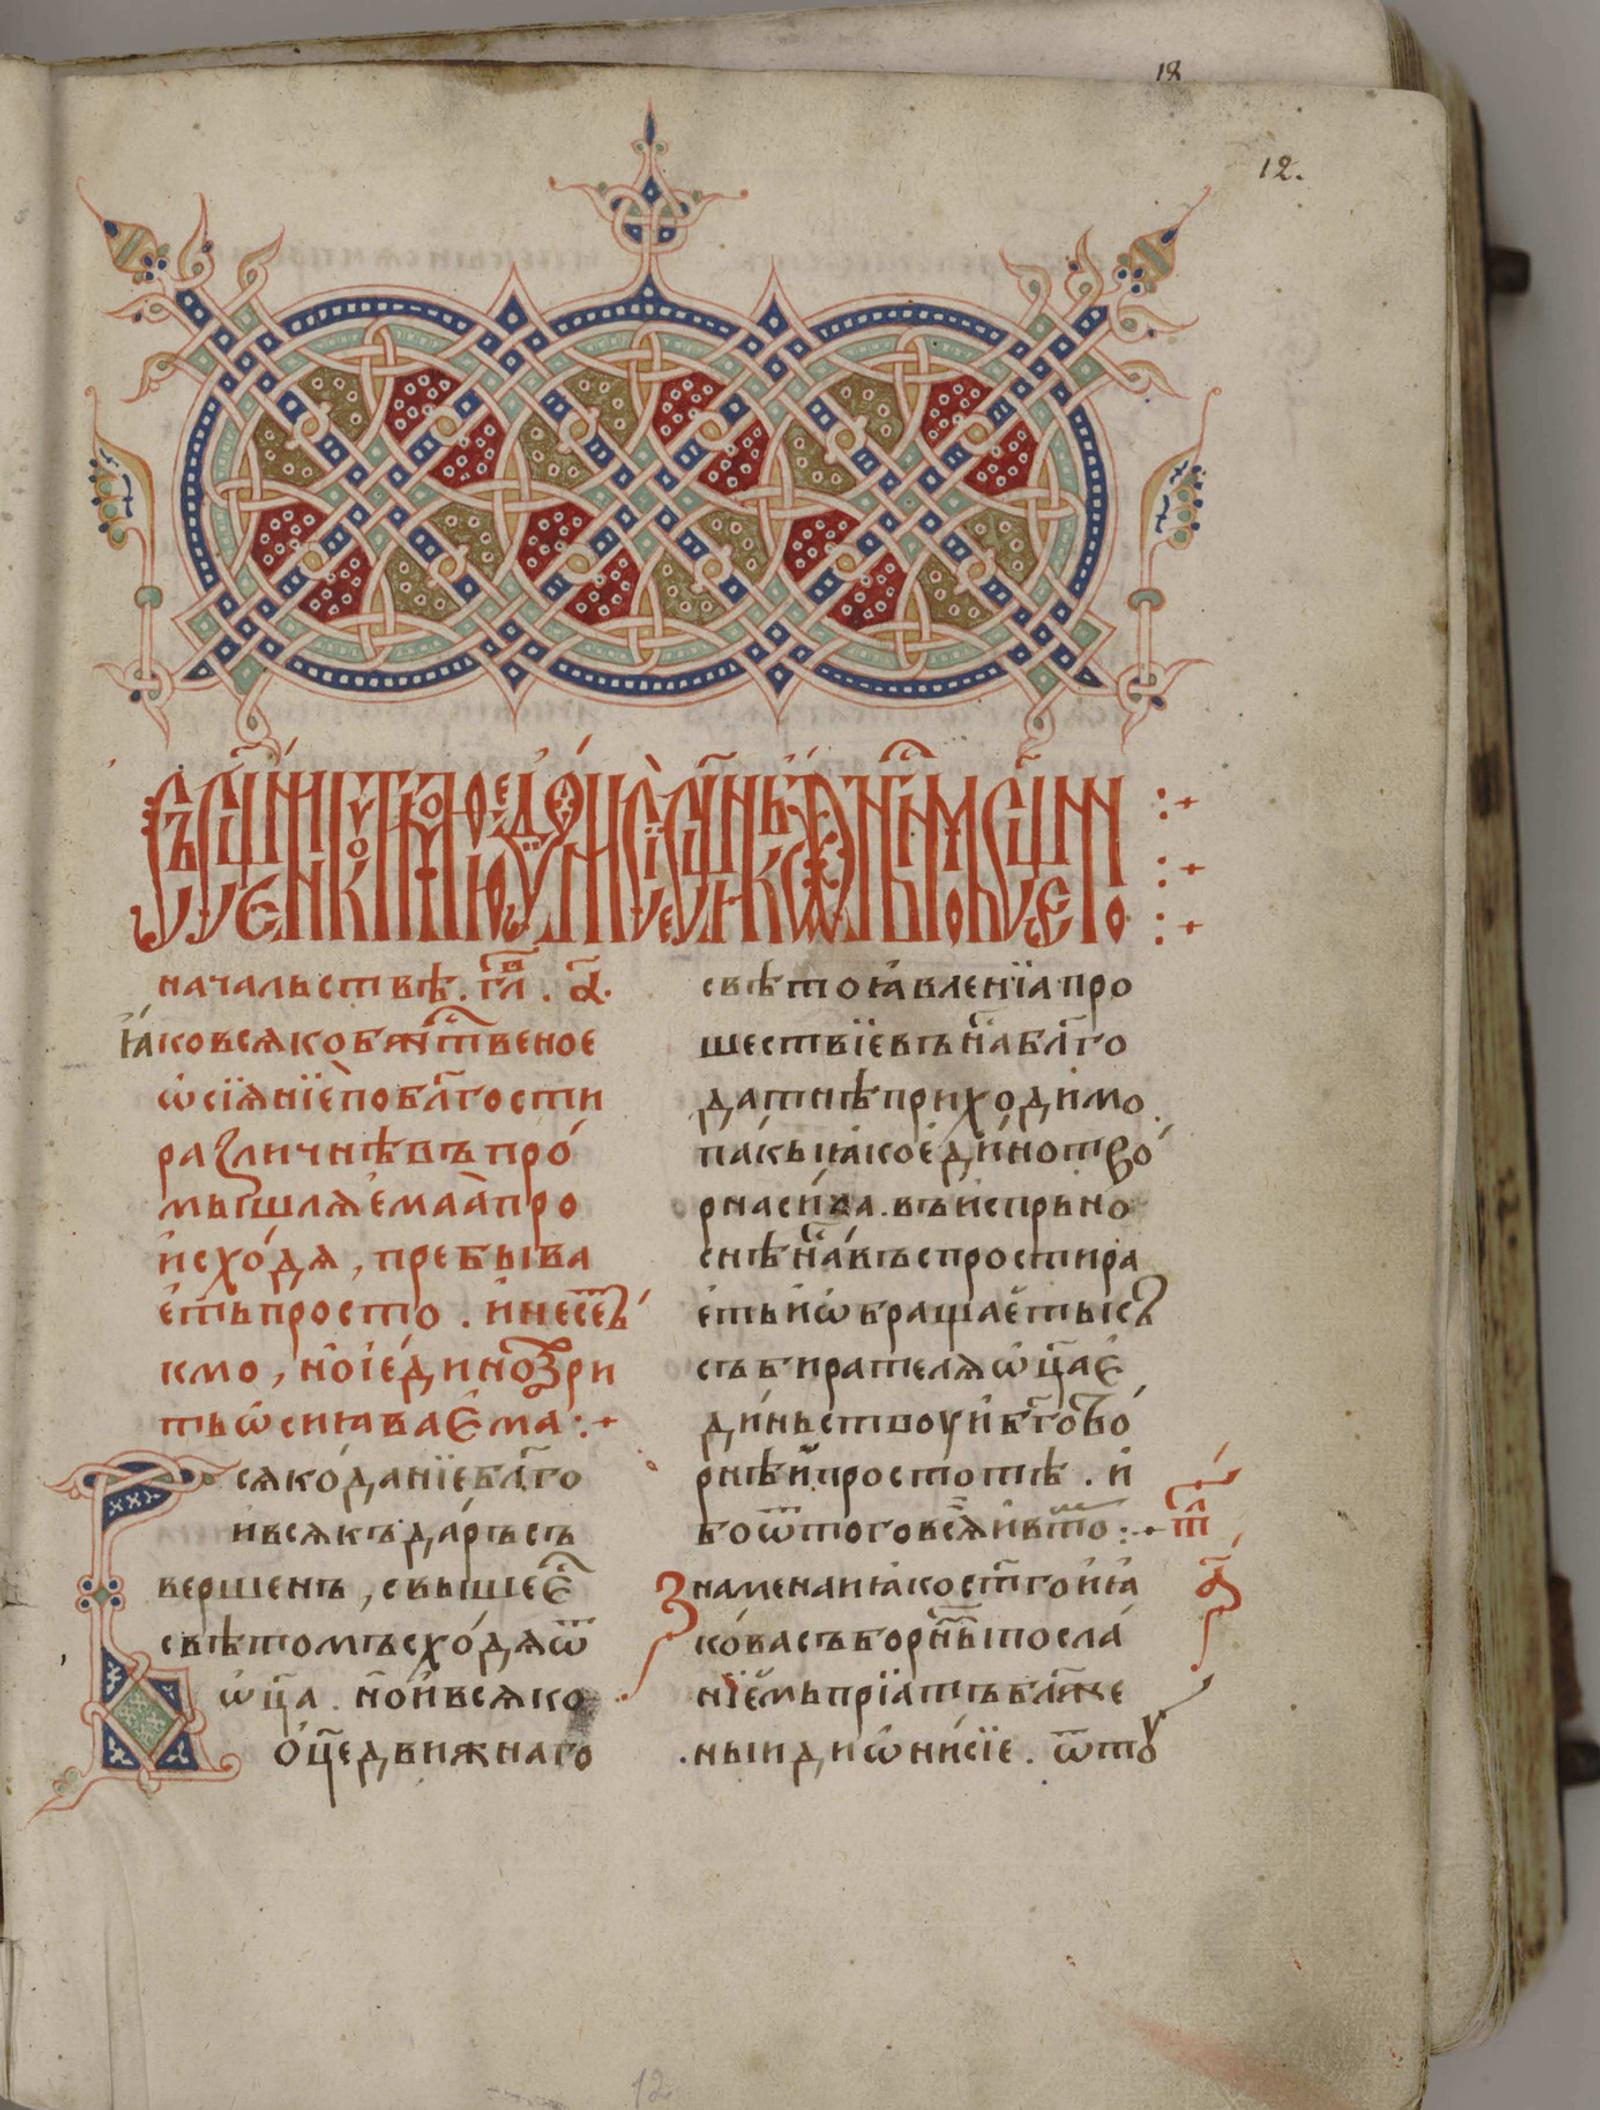 18
12.
начальствѣ. гл҃в. а҃.
ꙗ҆ковсѧкобж҃ственое
ѡ҆сїѧнїе҆побл҃гости
разⷧ҇ичнѣвъпро́
мышлѧ́емаа҆про
и҆схо́дѧ, пребыва
е҆тьпросто. и҆несе́
кмо, но҆іе҆диноꙁри
тьѡ҆сиꙗваЄ҆ма:+
сѧко́данїебл҃го
и҆всѧкъда́ръсъ
вершенъ, свышеє҆
свѣтомъсхо́дѧѿ
ѡ҆ц҃а. но҆и҆всѧко
Ѻ҆ц҃едвижнаго
свѣтоꙗ҆вленїапро
шествїевъна҆бл҃го
датнѣприходимо
па́кыꙗ҆кое҆ди́нотво́
рнаси́ла.въи҆спрьно
снѣна҆въспростира
е҆тьи҆ѡ҆бращае҆тьіс
събирателѧѡ҆ц҃аЄ҆
ди́ньствоуи҆бг҃ово́
рнѣи҆простотѣ. и҆
боѿтоговсѧ҆и҆вто:+
знаменаиꙗ҆кост҃гои҆ꙗ҆
ко́васъборны҆посла́
нїе҆мьпрїатъбл҃же
ныидиѡ҆ни́сїе. ѿтоу
т҃л
а҃
12